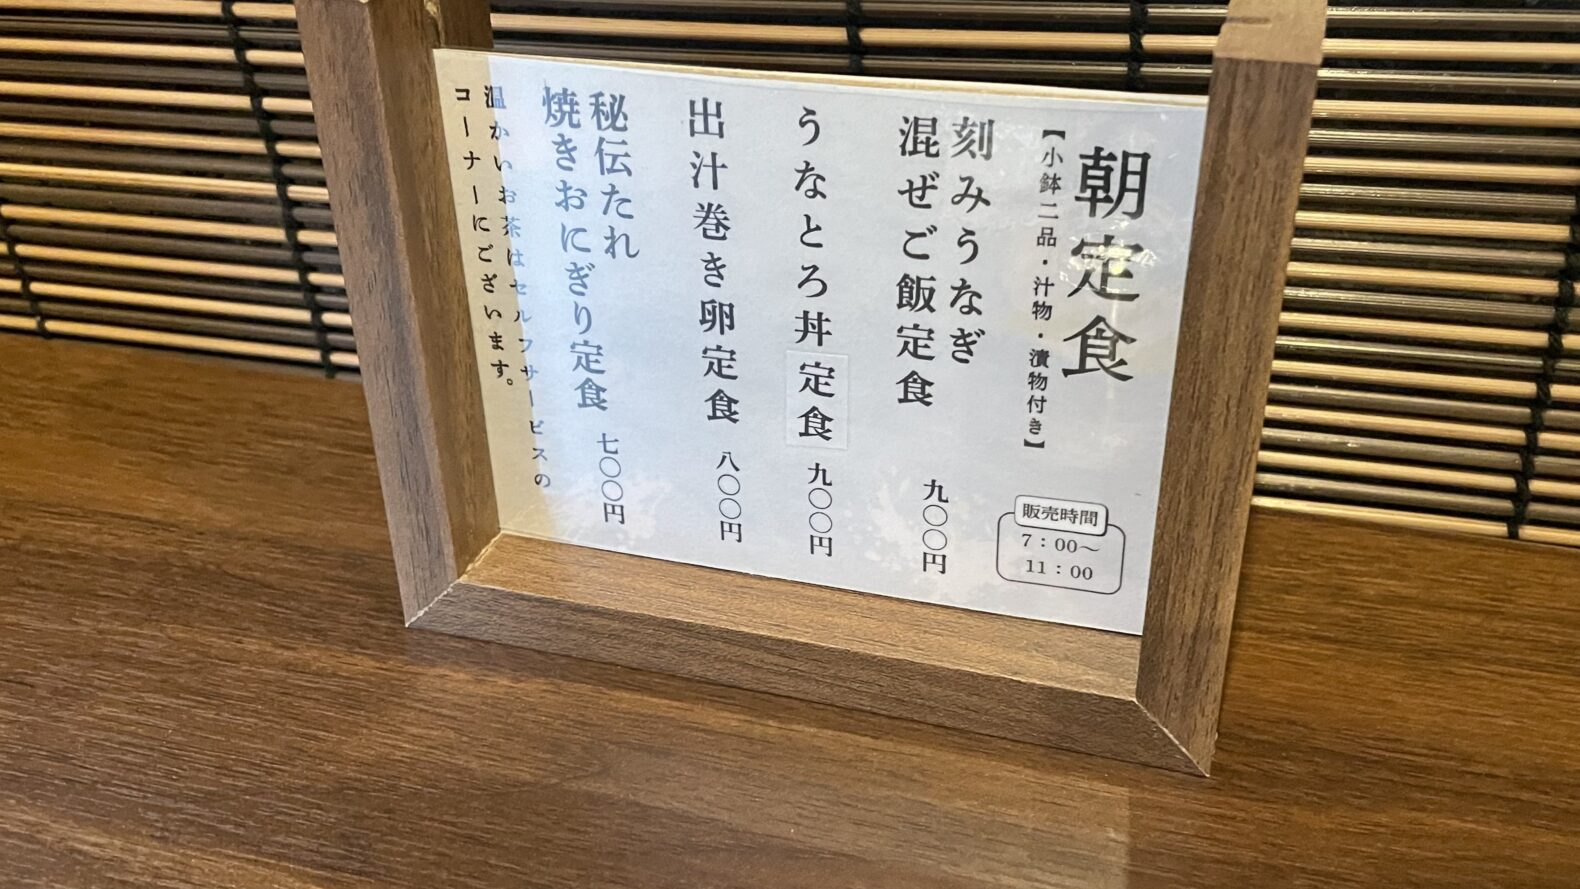 朝定食
【小鉢二品・汁物・漬物付き】
販売時間
7：00～
11：00
刻みうなぎ
混ぜご飯定食
九〇〇円
うなとろ丼定食 九〇〇円
出汁巻き卵定食 八〇〇円
秘伝たれ
焼きおにぎり定食 七〇〇円
温かいお茶はセルフサービスの
コーナーにございます。